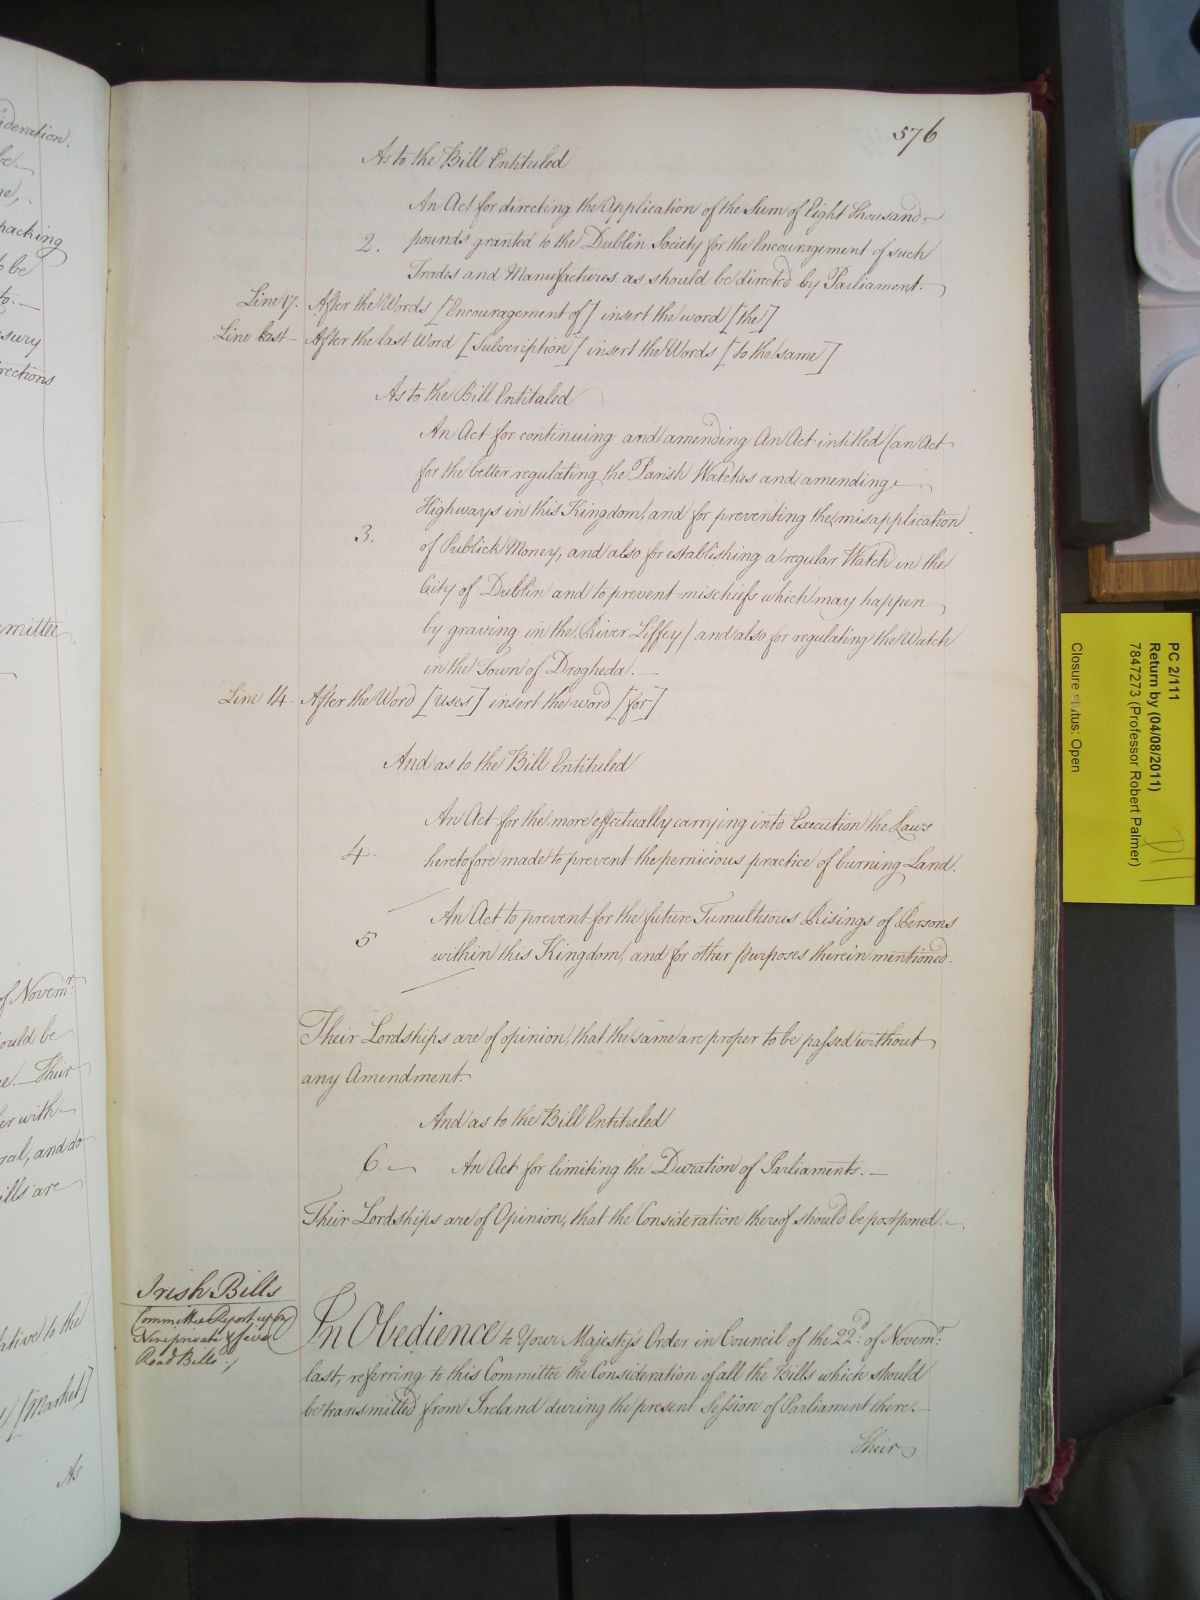 576
As to the Bill Entituled
An Act for directing the Application of the Sum of Eight Thousand
2. pounds granted to the Dublin Society for the Encouragement of such
Trades and Manufactures as should be directed by Parliament.
Line 17. After the Words [Encouragement of] insert the word [the]
Line last After the last Word [Subscription] insert the Words [to the same]
As to the Bill Entituled
An Act for continuing and amending An Act intitled (an Act
for the better regulating the Parish Watches and amending
Highways in this Kingdom, and for preventing the misapplication
3. of Publick Money, and also for establishing a regular Watch in the
City of Dublin and to prevent mischiefs which may happen
by graving in the River Liffey) and also for regulating the Watch
in the Town of Drogheda.
Line 14. After the Word [uses] insert the word [for]
And as to the Bill Entituled
An Act for the more effectually carrying into Execution the Laws
4. heretofore made to prevent the pernicious practice of burning Land.
An Act to prevent for the future Tumultuous Risings of Persons
5 within this Kingdom, and for other purposes therein mentioned.
Their Lordships are of opinion, that the same are proper to be passed without
any Amendment.
And as to the Bill Entituled
6. An Act for limiting the Duration of Parliaments.
Their Lordships are of Opinion, that the Consideration thereof should be postponed.
Irish Bills
Committee Report upon
Road Bills
In Obedience to Your Majesty's Order in Council of the 22d. of Novemr.
last, referring to this Committee the Consideration of all the Bills which should
be transmitted from Ireland during the present Session of Parliament there.
Their
ideration.
be
packing
to be
to.
sury
rections
mmittee
of Novemr.
ould be
Their
er with
ral, and do
ills are
lative to the
[Market]
As
PC 2/111
Return by (04/08/2011)
7847273 (Professor Robert Palmer)
Closure status: Open